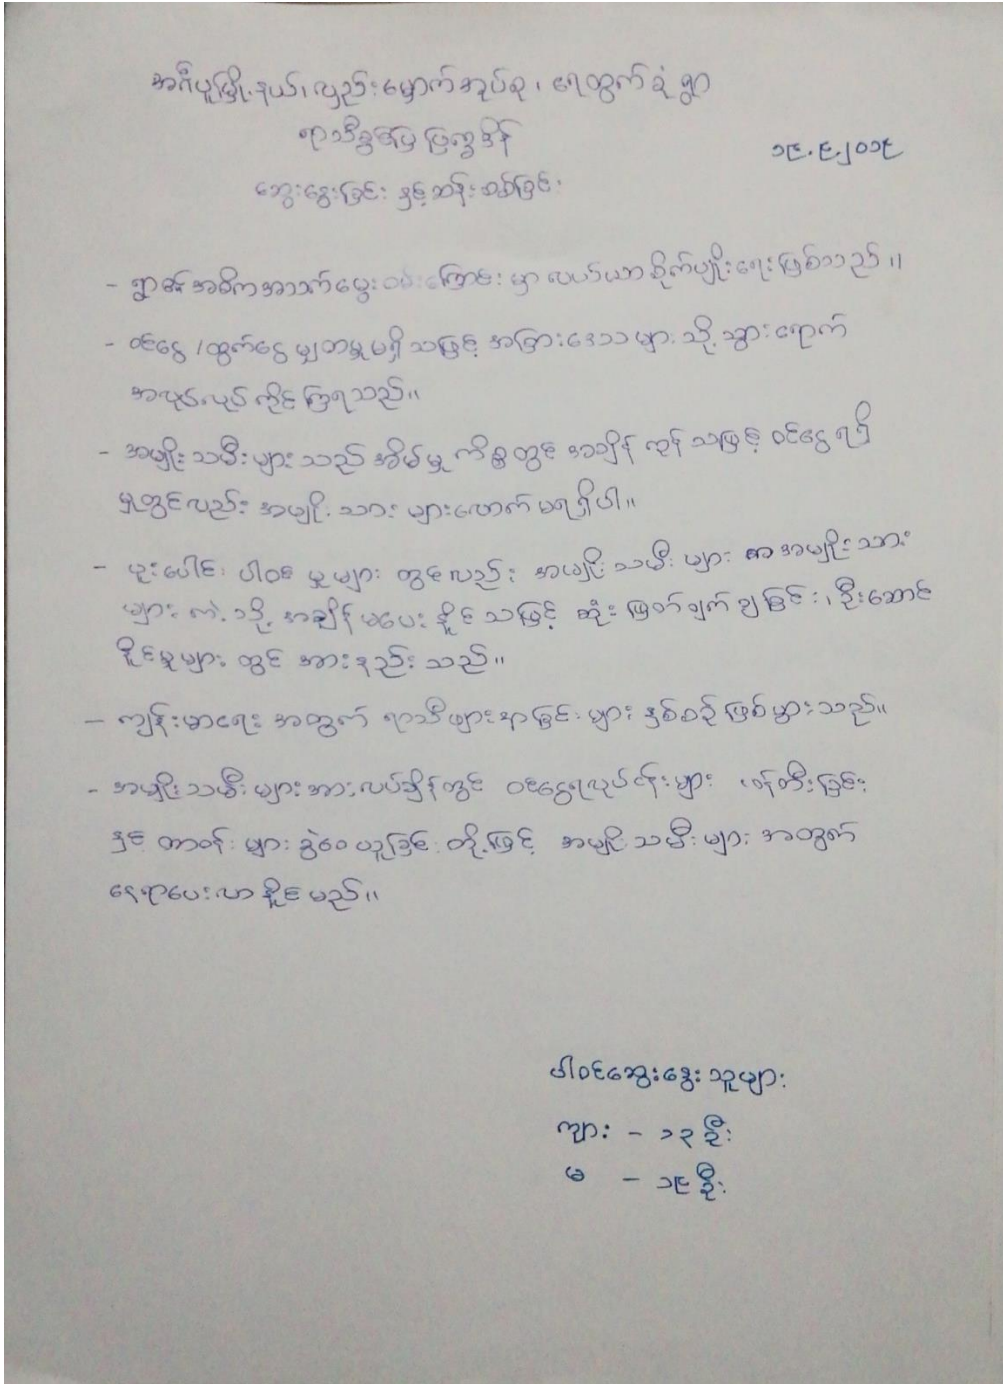 အင်္ဂပူမြို့နယ်၊ လှည်းမှောက်အုပ်စု၊ ရေထွက်စုံရွာ
ရာသီခွင်ပြ ပြက္ခဒိန်
၁၉.၉.၂၀၁၉
ဆွေးနွေးခြင်း နှင့် ဆန်းစစ်ခြင်း
- ရွာ၏ အဓိက အသက်မွေးဝမ်းကြောင်း မှာ လယ်ယာ စိုက်ပျိုးရေး ဖြစ်သည်။
- ဝင်ငွေ / ထွက်ငွေ မျှတမှု မရှိ သဖြင့် အခြားဒေသ များ သို့ သွားရောက်
အလုပ်လုပ်ကိုင် ကြရသည်။
- အမျိုးသမီးများ သည် အိမ်မှု ကိစ္စတွင် အချိန် ကုန် သဖြင့် ဝင်ငွေ ရရှိ
မှုတွင်လည်း အမျိုးသား များလောက် မရရှိပါ။
- ပူးပေါင်း ပါဝင် မှု များ တွင်လည်း အမျိုးသမီး များ အမျိုးသား
များ ကဲ့သို့ အချိန် မပေး နိုင် သဖြင့် ဆုံးဖြတ်ချက် ချခြင်း၊ ဦးဆောင်
နိုင်မှုများ တွင် အားနည်း သည်။
- ကျန်းမာရေး အတွက် ရာသီဖျားနာခြင်း များ နှစ်စဉ် ဖြစ်ပွားသည်။
- အမျိုးသမီး များ အားလပ်ချိန်တွင် ဝင်ငွေရလုပ်ငန်းများ ဖန်တီးခြင်း
နှင့် တာဝန် များ ခွဲဝေ ယူခြင်း တို့ဖြင့် အမျိုးသမီး များ အတွက်
နေရာပေး လာ နိုင် မည်။
ပါဝင်ဆွေးနွေး သူများ
ကျား - ၁၃ ဦး
မ - ၁၉ ဦး